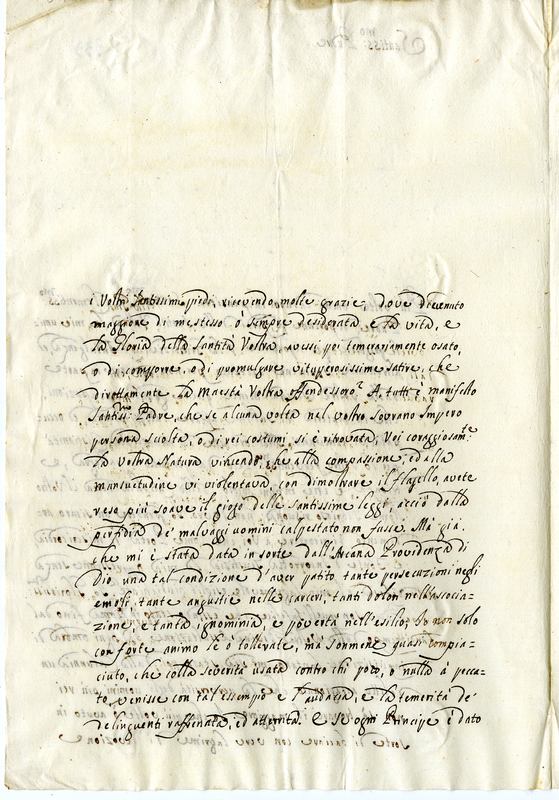 i Vostri Santissimi piedi, ricevendo molte grazie, dove divenuto
maggiore di mestesso ò sempre desiderata e la vita, e
la Gloria della Santità Vostra, avessi poi temerariamente osato,
o di comporre, o di promulgare vituperosissime satire, che
direttamente la Maestà Vostra offendessero? A tutti è manifesto
Santiss:mo Padre, che se alcuna volta nel vostro Sovrano Impero
persona sciolta, o di rei costumi si è ritrovata, Voi coraggiosam:te
la vostra Natura vincendo, che alla compassione, ed alla
mansuetudine vi violentava, con dimostrare il flagello, avete
reso più soave il giogo delle Santissime leggi, acciò dalla
perfidia de' malvaggi uomini calpestato non fusse. Ma già
che mi è stata data in sorte dall'Arcana Providenza di
Dio una tal condizione d'aver patito tante persecuzioni negli
emoli, tante angustie nelle carceri, tanti dolori nell'associa-
zione, e tanta ignominia, e povertà nell'esilio; Io non solo
con forte animo le ò tollerate, ma sonmene quasi compia-
ciuto, che colla severità usata contro chi poco, o nulla à pecca-
to, venisse con tal essempio e l'audacia, e la temerità de'
delinquenti raffrenata, ed atterrita. E se ogni Principe è dato